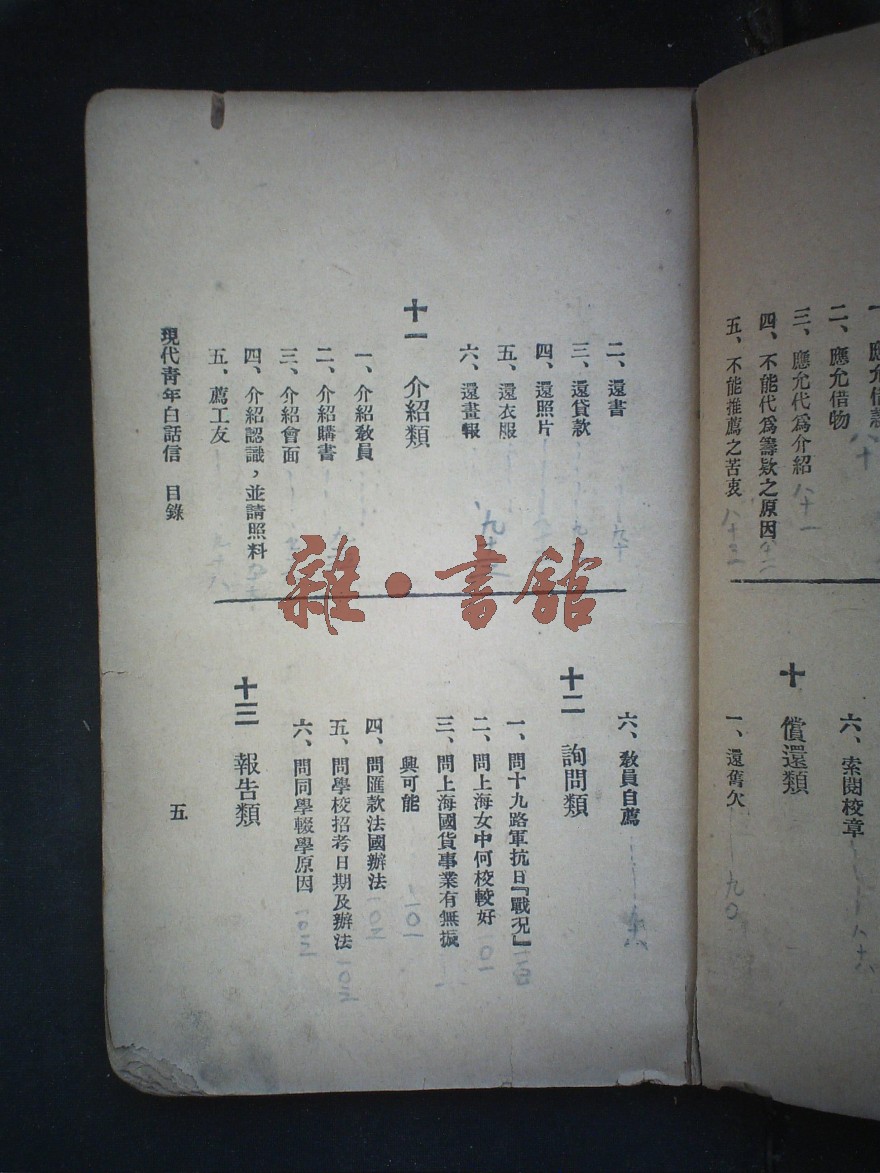 一、應允借
二、應允借物
三、應允代爲介紹 八十一
四、不能代爲籌欵之原因
五、不能推薦之苦衷 八十三
六、索閱校章 八十六
十 償還類
一、還舊欠 九〇
二、還書 九十
三、還貸款
四、還照片
五、還衣服
六、還畫報
十一 介紹類
一、介紹敎員
二、介紹購書
三、介紹會面
四、介紹認識，並請照料
五、薦工友
六、敎員自薦
十二 詢問類
一、問十九路軍抗日『戰况』
二、問上海女中何校較好 一〇一
三、問上海國貨事業有無振
興可能 一〇一
四、問匯款法國辦法 一〇二
五、問學校招考日期及辦法 一〇三
六、問同學輟學原因 一〇三
十三 報告類
現代靑年白話信 目錄
五
雜·書館